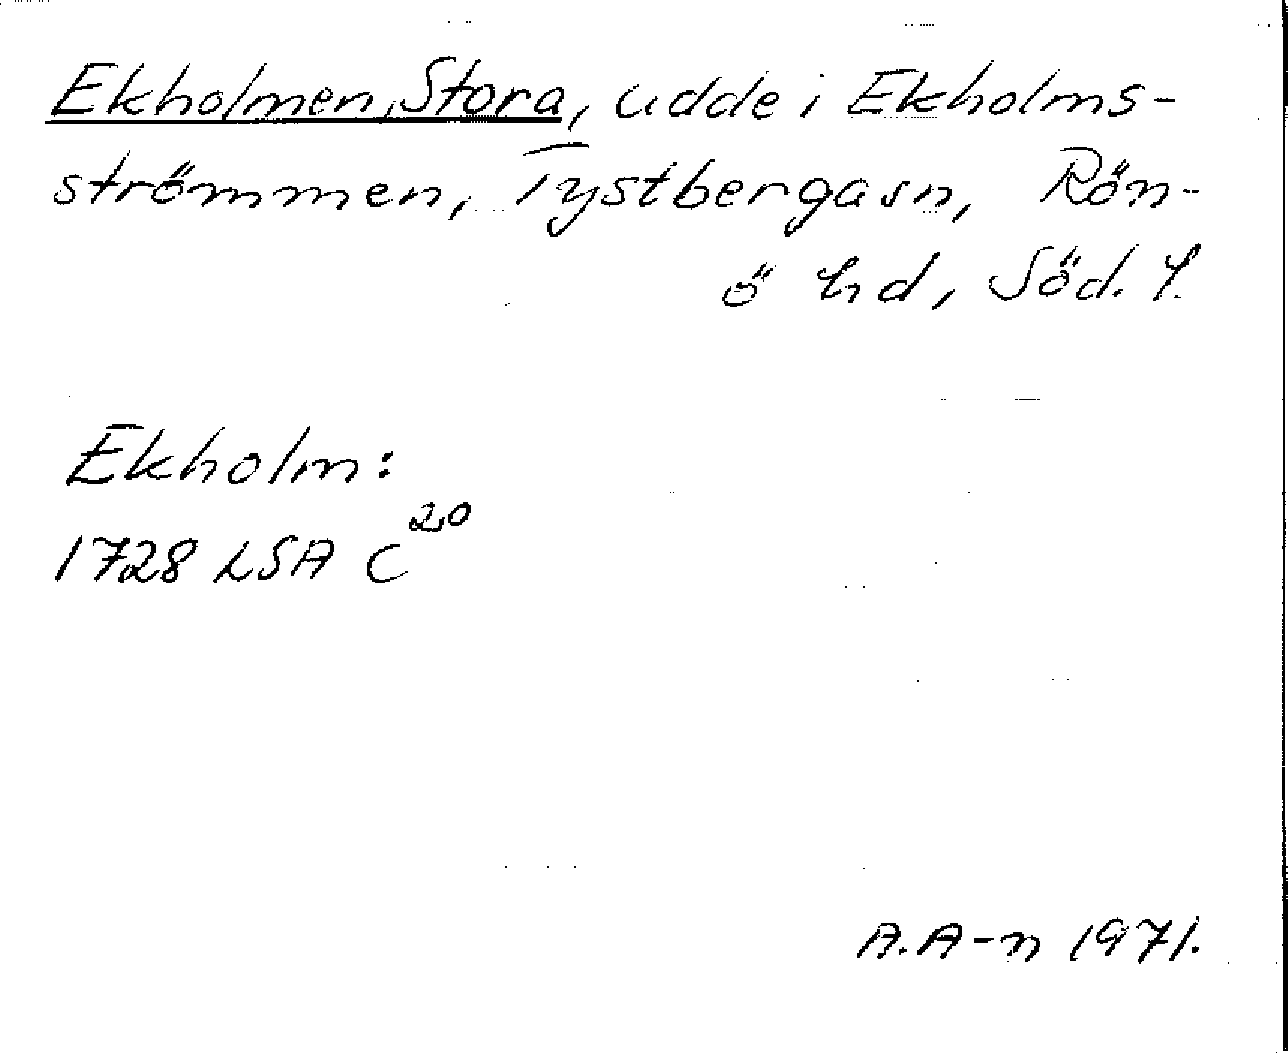 Ekholmen, Stora, udde i Ekholms-
strömmen, Tystbergasn, Rön-
ö hd, Söd. l.
Ekholm:
1728 LSA C20
A.A-n 1971.